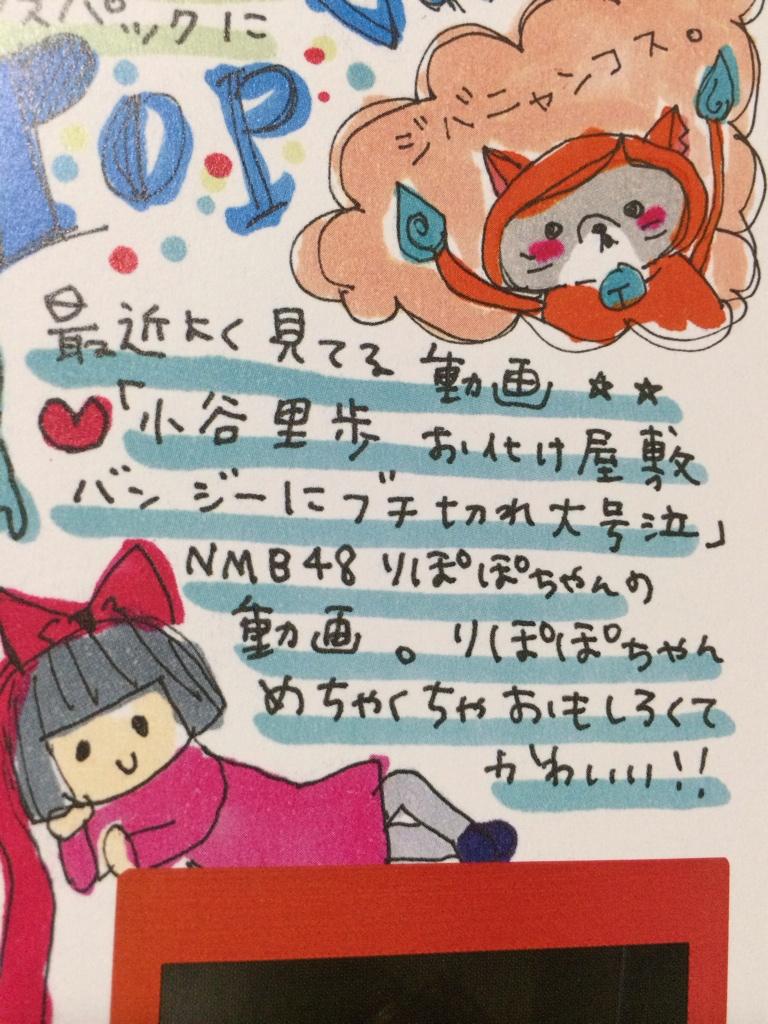 スパックに
POP
ジバニャンコス。
最近よく見てる動画☆☆
♥「小谷里歩 お化け屋敷
バンジーにブチ切れ大号泣」
NMB48 りぽぽちゃんの
動画。りぽぽちゃん
めちゃくちゃおもしろくて
かわいい!!